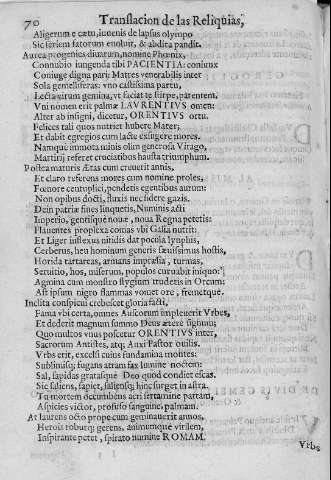 70 Translacion de las Reliquias,
Aligerum e cœtu, iuuenis de lapsus olympo
Sic seriem fatorum enoluit, & abdita pandit.
Aurea progenies diuûm, nomine Phœnix,
Connubio iungenda tibi PACIENTIA: coniunx
Coniuge digna pari: Matres venerabilis inter
Sola genelliferas: vno castissima partu,
Lectauirum gemina, vt faciat te stirpe, parentem.
Vni nomen erit palmæ LAVRENTIVS omen:
Alter ab insigni, dicetur, ORENTIVS ortu.
Felices tali quos nutriet hubere Mater;
Et dabit egregios cum lacte exsurgere mores.
Namque immota minis olim generosa Virago,
Martirij referet cruciatibus hausta triumphum.
Postea maturis Ætas cum creuerit annis,
Et claro referens mores cum nomine proles,
Fœnore centuplici, pendetis egentibus aurum:
Non opibus docti, fluxis necfidere gazis.
Dein patriæ fines linquetis, Numinis acti
Imperio, gentisque nouæ, noua Regna petetis:
Flauentes proplexa comas vbi Gallia nutrit:
Et Liger iustexus nitidis dat pocula lynphis,
Cerberus, heu hominum generis sæuissimus hostis,
Horida tartareas, armans impræia, turmas,
Seruitio, hos, miserum, populos curuabit iniquo:
Agmina cum monstro stygium trudetis in Orcum:
Ast ipsum nigro flammas vomet ore, fremetque.
Inclita conspicui crebescet gloria facti,
Fama vbi certa, omnes Auscorum impleuerit Vrbes,
Et dederit magnum summo Deus æthere signum;
Quo multos vnus poscetur ORENTIVS inter,
Sacrorum Antistes, atq; Auxi Pastor ouilis.
Vrbs erit, excelsi cuius fundamina montes:
Sublimusq; fugans atram fax lumine noctem:
Sal, sapidas gratasque Deo quod condiet escas.
Sic saliens, sapiet, saliensq; hinc surget in astra.
Tu mortem occumbens acri sertamine partam,
Aspicies victor, profuso sanguine, palmam.
At laurens octo prope cum geminauerit annos,
Herois roburq; gerens, animumque virilem,
Inspirante petet, spirato numine ROMAM.
Vrbs